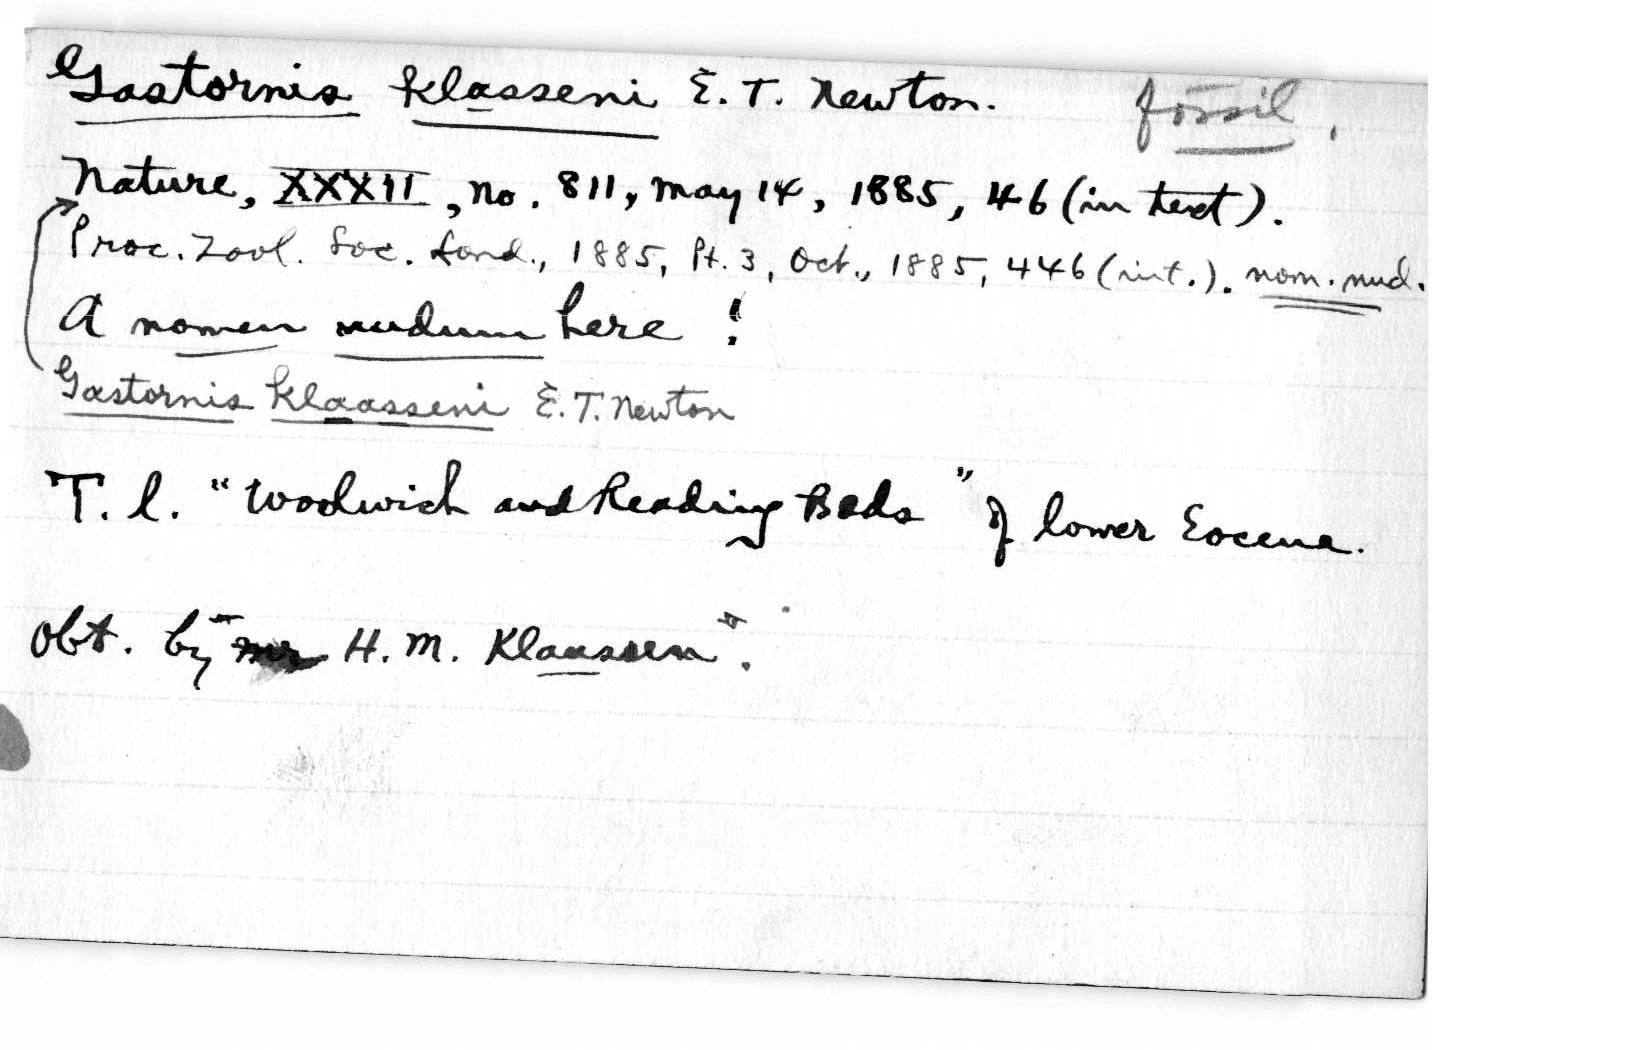 Gastornis klasseni E. T. Newton. fossil.
Nature, XXXII, no. 811, may 14, 1885, 46 (in text).
Proc. Zool. Soc. Lond., 1885, Pt. 3, Oct., 1885, 446 (int.). nom. nud.
A nomen nudum here!
Gastornis klaasseni E. T. Newton
T. l. "Woolwich and Reading Beds" of lower Eocene.
Obt. by "Mr H. M. Klaussen".